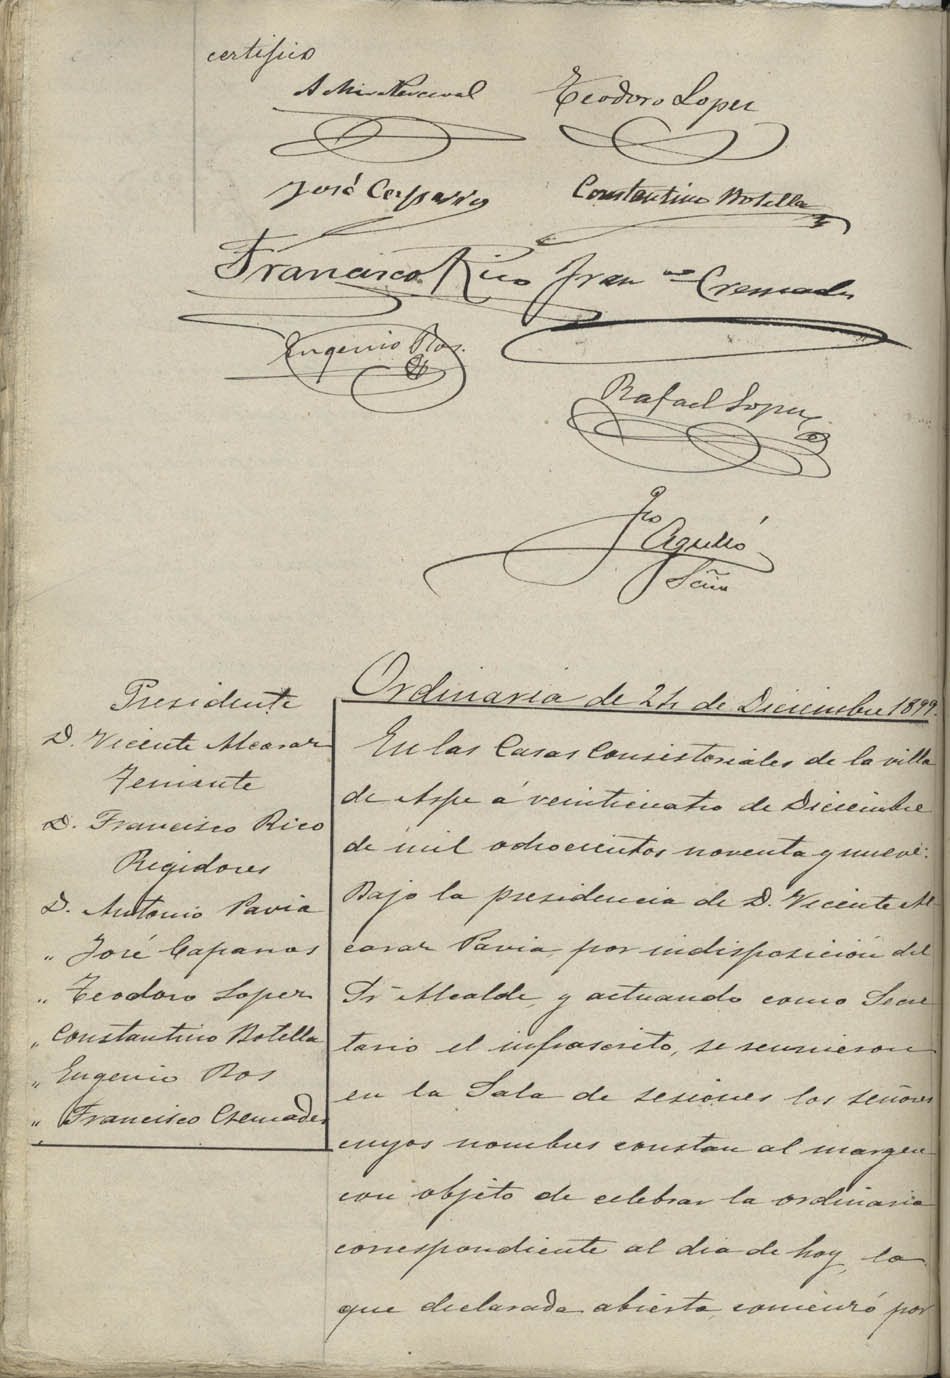 certifico
Teodoro Lopez
José
Constantino Botella
Francisco Rico
Fran co Cremades
Eugenio Ros
Rafael Lopez
Fco Agulló
Srio
Presidente
D. Vicente Alcaraz
Teniente
D. Francisco Rico
Regidores
D. Antonio Pavia
" José Caparros
" Teodoro Lopez
" Constantino Botella
" Eugenio Ros
" Francisco Cremades
Ordinaria de 24 de Diciembre 1899.
En las Casas Consistoriales de la villa
de Aspe á veinticuatro de Diciembre
de mil ochocientos noventa y nueve:
Bajo la presidencia de D. Vicente Al-
caraz Pavia, por indisposición del
Sr Alcalde, y actuando como Secre
tario el infrascrito, se reunieron
en la Sala de sesiones los señores
cuyos nombres constan al margen
con objeto de celebrar la ordinaria
correspondiente al dia de hoy, la
que declarada abierta, comienzó por